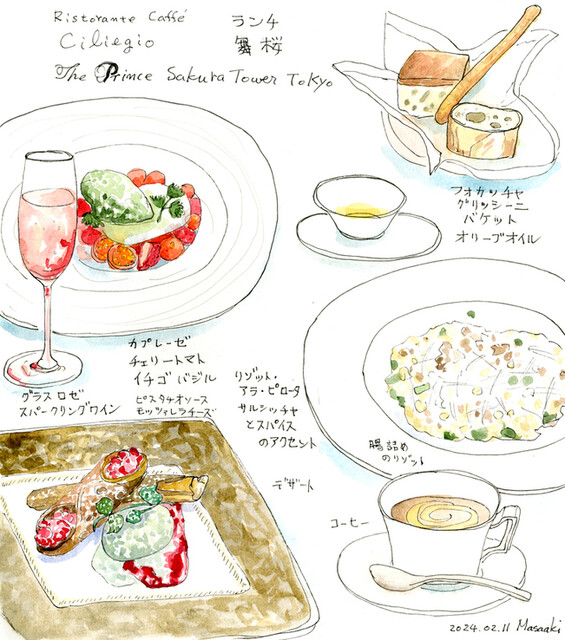 Ristorante Caffé
Ciliegio
The Prince Sakura Tower Tokyo
ランチ
舞桜
フォカッチャ
グリッシーニ
バケット
オリーブオイル
グラス ロゼ
スパークリングワイン
カプレーゼ
チェリートマト
イチゴ バジル
ピスタチオソース
モッツァレラチーズ
リゾット・
アラ・ピロータ
サルシッチャ
とスパイス
のアクセント
腸詰め
のリゾット
デザート
コーヒー
2024.02.11 Masaaki